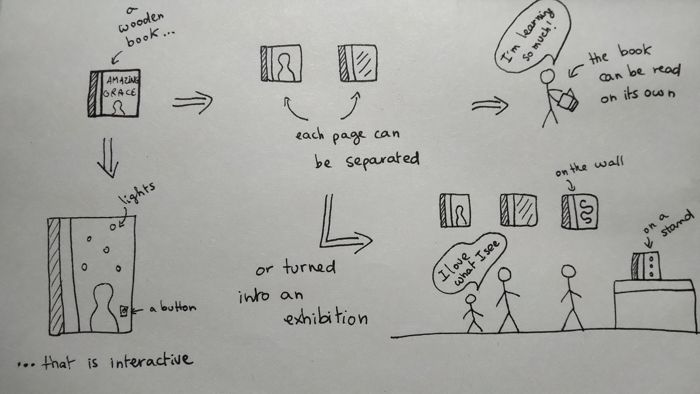 a
wooden
book...
AMAZING
GRACE
each page can
be separated
I'm learning
so much!
the book
can be read
on its own
lights
a button
... that is interactive
or turned
into an
exhibition
on the wall
I love
what I see
on a
stand